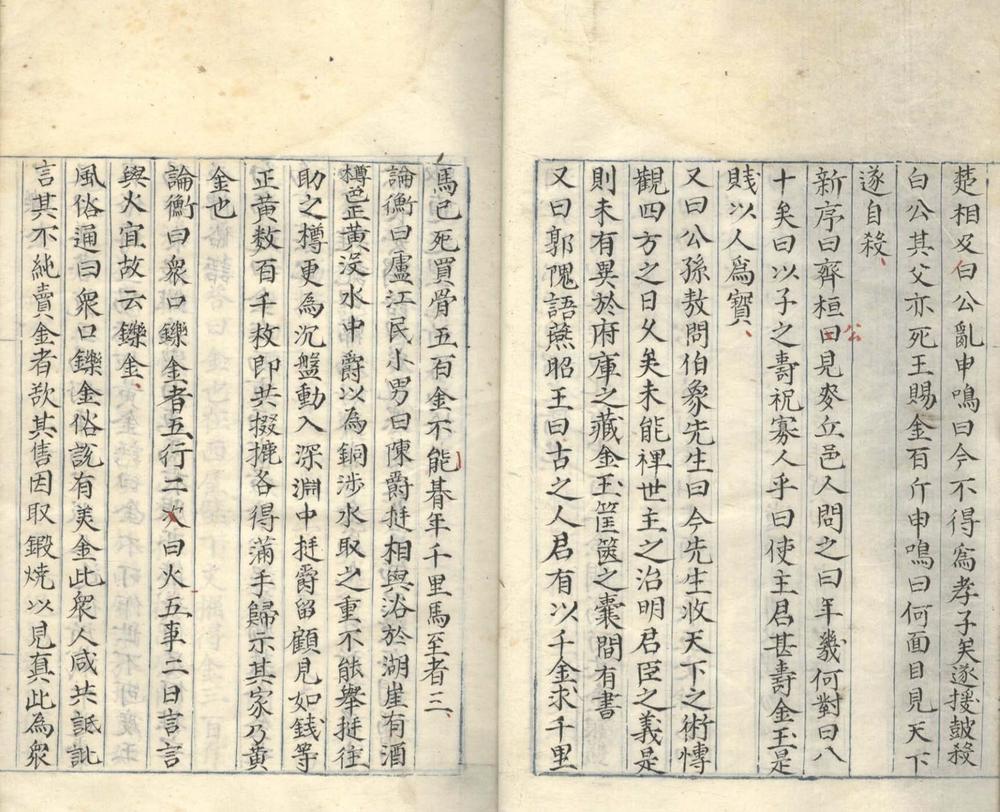 楚相及白公亂申鳴曰今不得爲孝子矣遂援皷殺
白公其父亦死王賜金百斤申鳴曰何面目見天下
遂自殺
新序曰齊桓曰見麥丘邑人問之曰年幾何對曰八
公
十矣曰以子之壽祝寡人乎曰使主君甚壽金玉是
賎以人爲寳
又曰公孫敖問伯象先生曰今先生收天下之術慱
觀四方之日久矣未能裨世主之治明君臣之義是
則未有異於府庫之藏金玉筐篋之囊間有書
又曰郭隗語燕昭王曰古之人君有以千金求千里
馬已死買骨五百金不能朞年千里馬至者三
論衡曰廬江民小男曰陳爵挺相與浴於湖崖有酒
樽色正黄没水中爵以為銅涉水取之重不能舉挺往
助之樽更為沉盤動入深淵中挺爵留顧見如錢等
正黄数百千枚即共掇摝各得滿手歸示其家乃黄
金也
論衡曰衆口鑠金者五行二次曰火五事二曰言言
與火宜故云鑠金
風俗通曰衆口鑠金俗說有美金此衆人咸共詆訿
言其不純賣金者欲其售因取鍛燒以見真此為衆